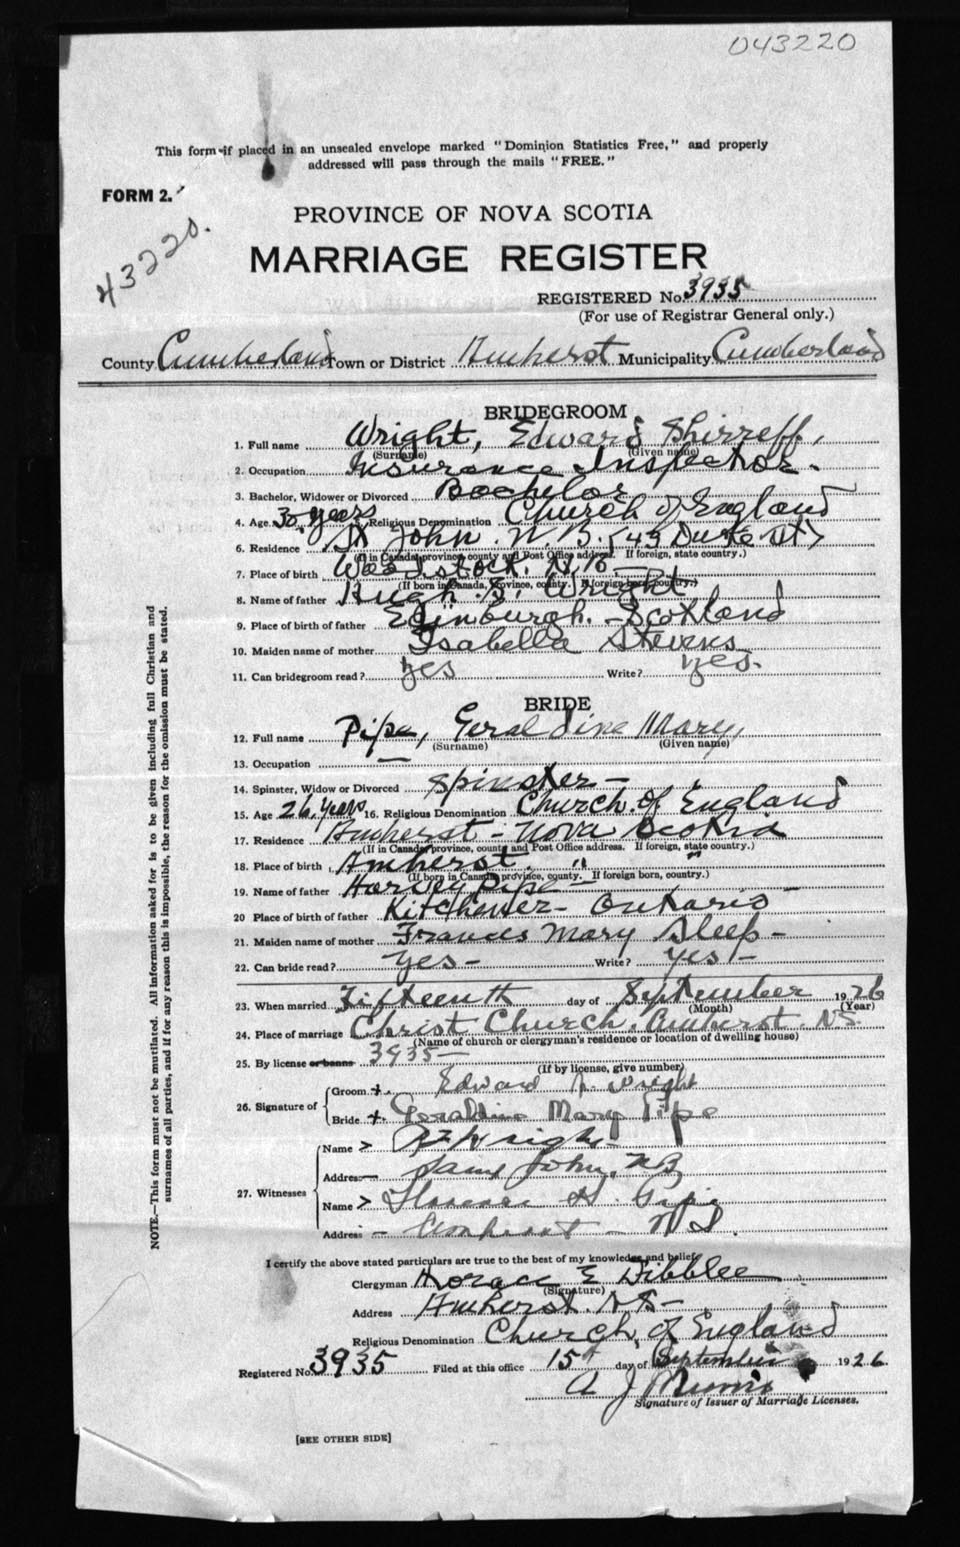 043220
This form if placed in an unsealed envelope marked "Dominion Statistics Free," and properly
addressed will pass through the mails "FREE."
FORM 2.
43220.
PROVINCE OF NOVA SCOTIA
MARRIAGE REGISTER
REGISTERED No. 3935
(For use of Registrar General only.)
County Cumberland Town or District Amherst Municipality Cumberland
BRIDEGROOM
1. Full name Wright, Edward Shirreff,
(Surname) (Given name)
2. Occupation Insurance Inspector.
3. Bachelor, Widower or Divorced Bachelor
4. Age 30 years Religious Denomination Church of England
6. Residence St John. N.B. (43 Duke St)
(If in Canada, province, county and Post Office address. If foreign, state country.)
7. Place of birth Woodstock. N.B. —
(If born in Canada, province, county. If foreign born, country.)
8. Name of father Hugh S. Wright
9. Place of birth of father Edinburgh. - Scotland
10. Maiden name of mother Isabella Stevens
11. Can bridegroom read? yes Write? yes.
BRIDE
12. Full name Pipe, Geraldine Mary,
(Surname) (Given name)
13. Occupation —
14. Spinster, Widow or Divorced Spinster —
15. Age 26 years 16. Religious Denomination Church of England
17. Residence Amherst - Nova Scotia
(If in Canada, province, county and Post Office address. If foreign, state country.)
18. Place of birth Amherst " "
(If born in Canada, province, county. If foreign born, country.)
19. Name of father Harvey Pipe —
20 Place of birth of father Kitchener - Ontario —
21. Maiden name of mother Frances Mary Sleep —
22. Can bride read? yes - Write? yes —
23. When married Fifteenth day of September 1926
(Month) (Year)
24. Place of marriage Christ Church. Amherst. N.S.
(Name of church or clergyman's residence or location of dwelling house)
25. By license or banns 3935 —
(If by license, give number)
26. Signature of
Groom + Edward S. Wright
Bride + Geraldine Mary Pipe
27. Witnesses
Name > Wright
Address — Saint John, N.B
Name > Florence Pipe
Address - Amherst - N S.
I certify the above stated particulars are true to the best of my knowledge and belief.
Clergyman Horace E Dibblee
(Signature)
Address Amherst. N.S —
Religious Denomination Church of England
Registered No. 3935 Filed at this office 15th day of September 1926
A J
Signature of Issuer of Marriage Licenses.
[SEE OTHER SIDE]
NOTE.—This form must not be mutilated. All information asked for is to be given including full Christian and
surnames of all parties, and if for any reason this is impossible, the reason for the omission must be stated.